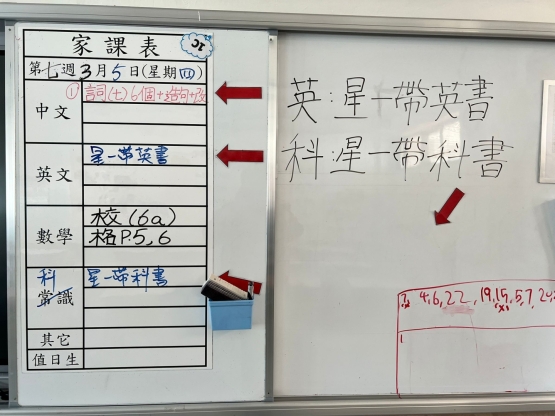 家課表
第七週3月5日(星期四)
中文 ①詞(七)6個+造句+改
英文 星一帶英書
數學 校(6a)
格P.5,6
科
常識 星一帶科書
其它
值日生
英:星一帶英書
科:星一帶科書
4,6,22,19,15,5,7,24
1